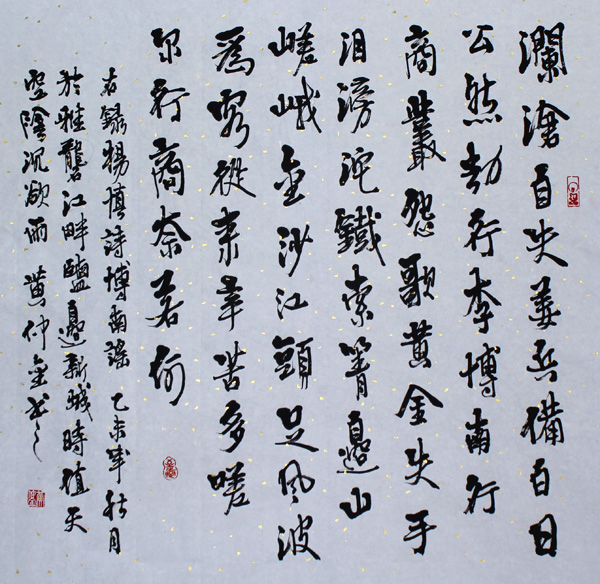 瀾滄自失姜兵備白日
公然劫行李博南行
商叢怨歌黄金失手
泪滂沱鐵索箐邊山
嵯峨金沙江頭足風波
為客從来辛苦多嗟
尔行商奈若何
右録楊慎詩博南謡 乙未年秋月
於雅礱江畔鹽邊新城時值天
空陰沉欲雨 黄仲金書之